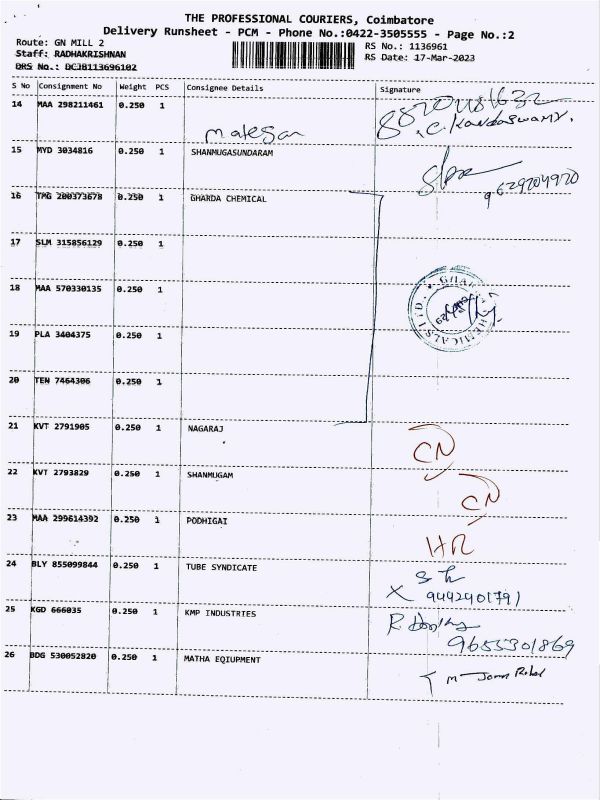 THE PROFESSIONAL COURIERS, Coimbatore
Delivery Runsheet - PCM - Phone No.:0422-3505555 - Page No.:2
Route: GN MILL 2
RS No.: 1136961
Staff: RADHAKRISHNAN
RS Date: 17-Mar-2023
DRS No.: DCJB113696102
S No Consignment No Weight PCS Consignee Details Signature
14 MAA 298211461 0.250 1
C. Kandaswamy.
15 MYD 3034816 0.250 1 SHANMUGASUNDARAM
16 TMG 200373678 0.250 1 GHARDA CHEMICAL
17 SLM 315856129 0.250 1
18 MAA 570330135 0.250 1
19 PLA 3404375 0.250 1
20 TEN 7464306 0.250 1
21 KVT 2791905 0.250 1 NAGARAJ
CN
22 KVT 2793829 0.250 1 SHANMUGAM
CN
23 MAA 299614392 0.250 1 PODHIGAI
HR
24 BLY 855099844 0.250 1 TUBE SYNDICATE
9442401791
25 KGD 666035 0.250 1 KMP INDUSTRIES
9655301869
26 BDG 530052820 0.250 1 MATHA EQIUPMENT